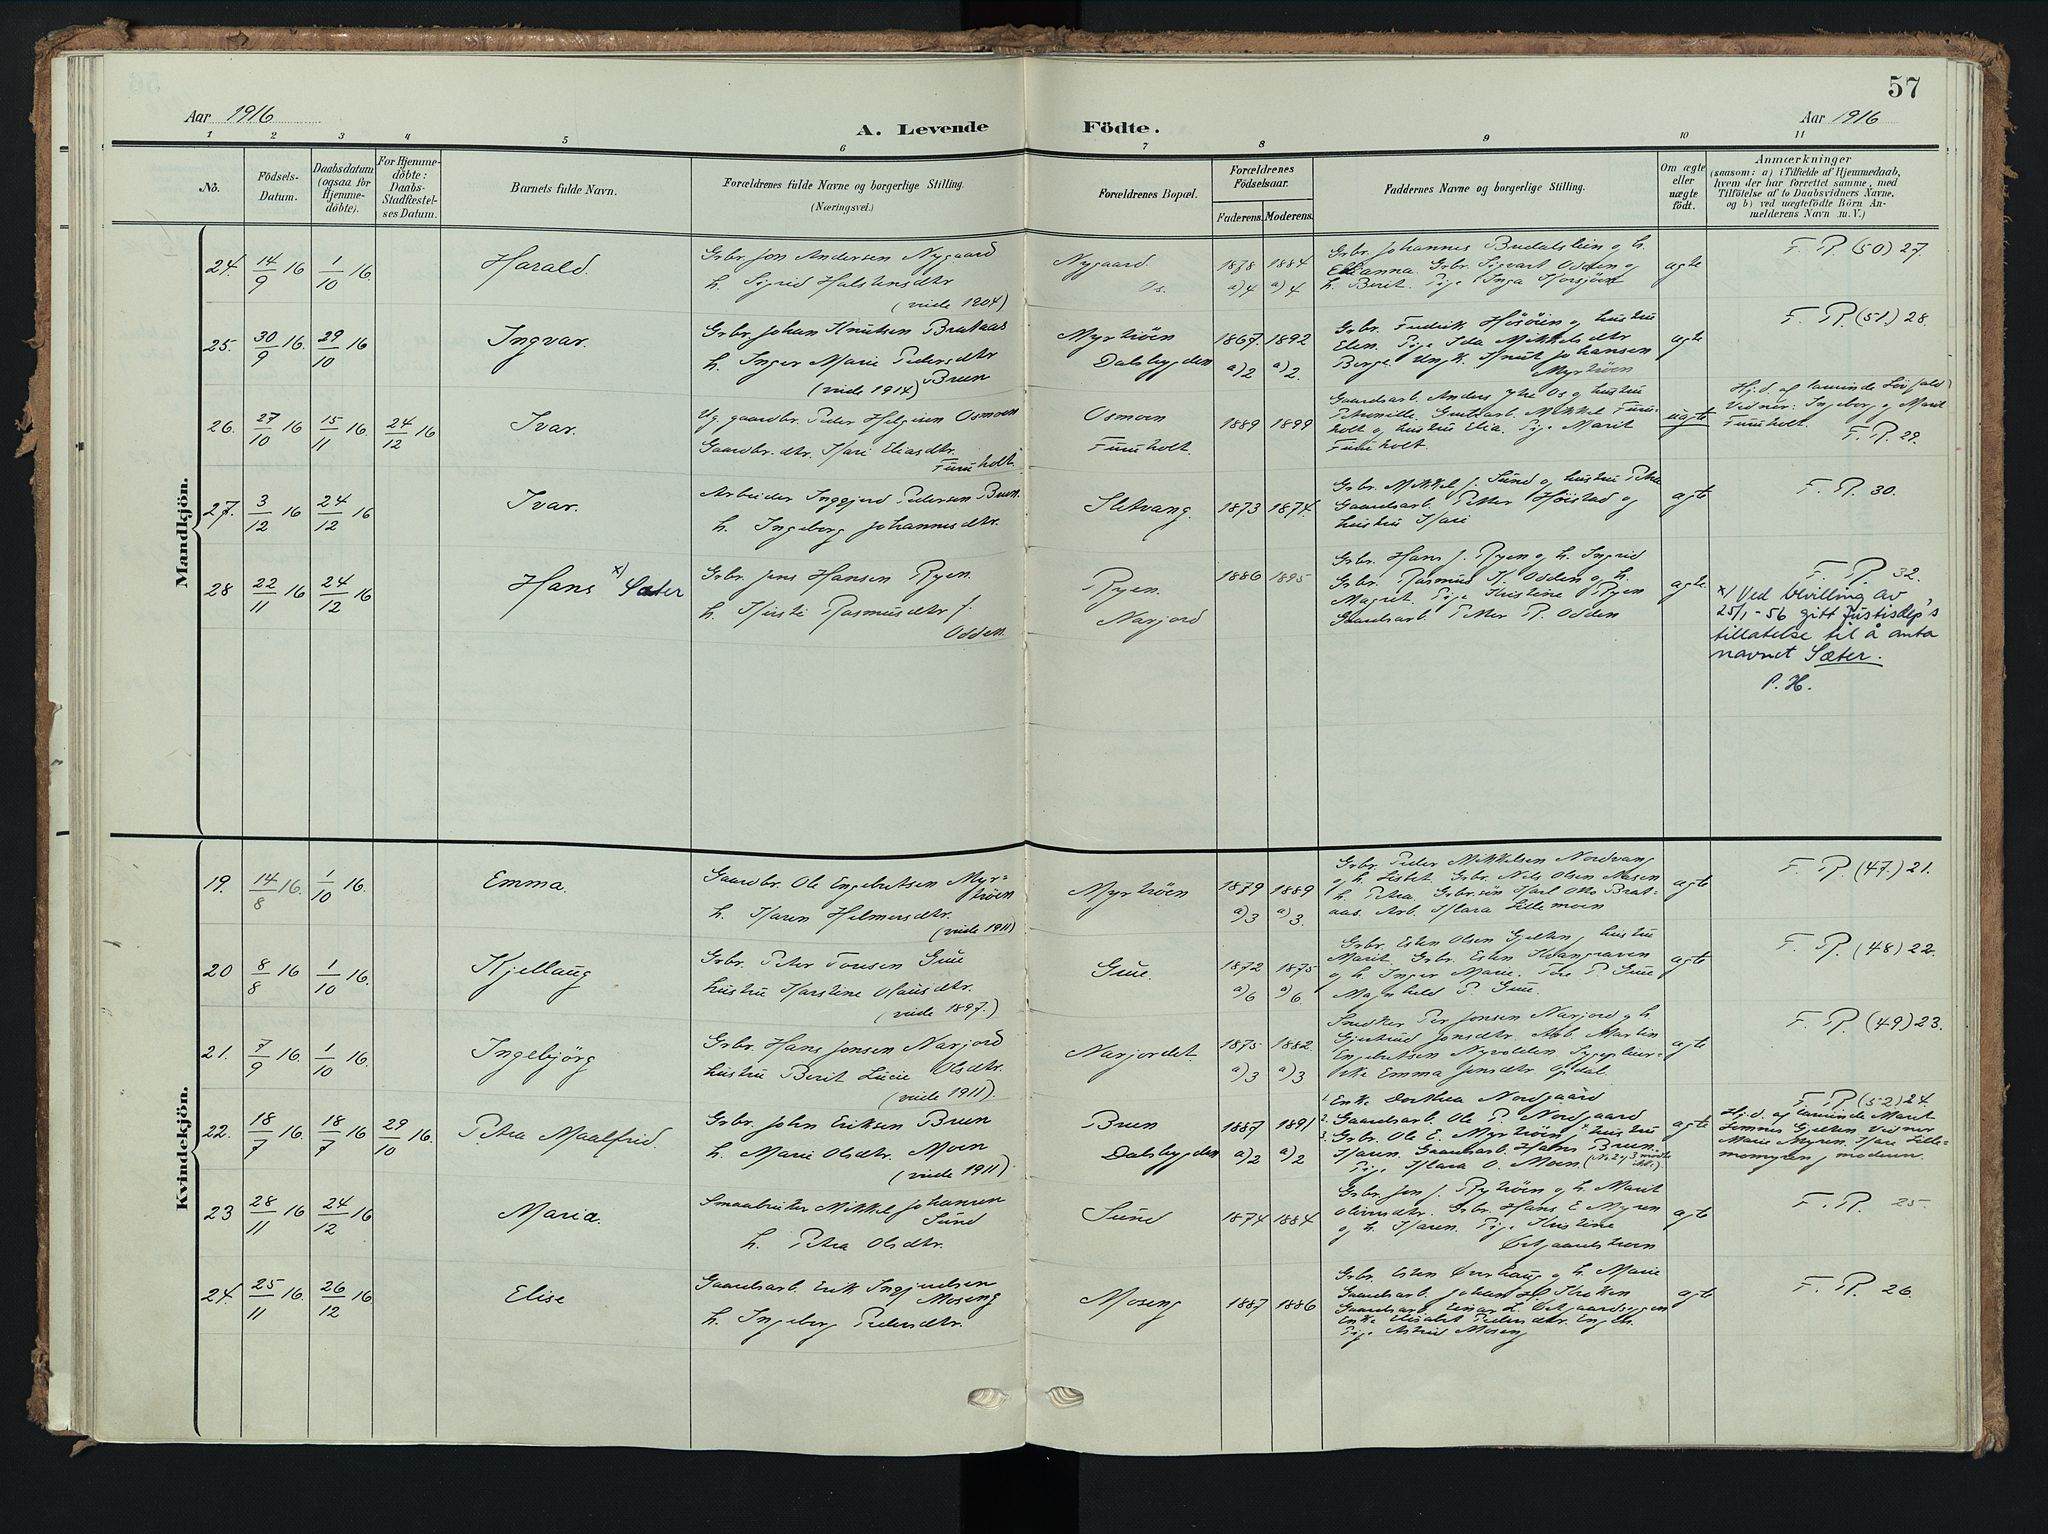 57
Aar 1916
A. Levende Födte.
Aar 1916
1 2 3 4 5 6 7 8 9 10 11
No.
Födsels-
Datum.
Daabsdatum
(ogsaa for
Hjemme-
döbte).
For Hjemme-
döbte:
Daabs-
Stadfæstel-
ses Datum.
Barnets fulde Navn.
Forældrenes fulde Navne og borgerlige Stilling.
(Næringsvei.)
Forældrenes Bopæl.
Forældrenes
Födselsaar.
Faderens. Moderens.
Faddernes Navne og borgerlige Stilling.
Om ægte
eller
uægte
födt.
Anmærkninger
(saasom: a) i Tilfælde af Hjemmedaab,
hvem der har forrettet samme, med
Tilföielse af to Daabsvidners Navne,
og b) ved uægtefödte Börn An-
melderens Navn m. V.)
Mandkjön.
24. 14/9 16 1/10 16. Harald.
Grbr. Jon Andersen Nygaard
h. Sigrid Halstensdtr
(viede 1904)
Nygaard.
Os.
1878 1884
a)4 a)4
Grbr. Johannes Brudalslien og h.
Grbr. Sigvart Odden og
h. Berit. Pige Inga Horsjöen
ægte
F. P. (50) 27.
25. 30/9 16. 29/10 16 Ingvar.
Grbr. Johan Knutsen Brataas
h. Inger Marie Pedersdtr
Brun
(viede 1914)
Myrtröen
Dalsbygden
1867. 1892
a)2 a)2.
Grbr. Fredrik Hösöien og hustru
Elen. Pige Ida Mikkelsdtr
Berge. Ungk. Knut Johansen
Myrtröen
ægte
F. P. (51.) 28.
26. 27/10 16 15/11 16. 24/12 16 Ivar.
Ug. gaardbr. Peder Helgesen Osmoen
Gaardbr. dtr. Kari Eliasdtr.
Furuholt.
Osmoen
Furuholt.
1889 1899
Gaardsarb. Anders Os og hustru
Petronille. Grubearb. Mikkel Furu-
holt og hustru Elia. Pige Marit
Furuholt.
uægte
Hj.d. af
Vidner: Ingeborg og Marit
Furuholt.
F. P. 29.
27. 3/12 16 24/12 16 Ivar.
Arbeider Inggjerd Pedersen Brun.
h. Ingeborg Johannesdtr.
Sletvang.
1873 1874.
Grbr. Mikkel J. Sund og hustru Petra
Gaardsarb. Petter Höistad og
hustru Kari
ægte
F. P. 30.
28 22/11 16 24/12 16 Hans x) Sæter
Grbr. Jens Hansen Ryen.
h. Kirsti Rasmusdtr f.
Odden.
Ryen.
Narjord
1886 1895
Grbr. Hans J. Ryen og h. Ingrid
Grbr. Rasmus K. Odden og h.
Magret. Pige Kristine Ryen
Gaardsarb. Petter R. Odden
ægte
F. P. 32.
x) Ved bevilling av
25/1-56 gitt Justisdep's
tillatelse til å anta
navnet Sæter.
P. H.
Kvindekjön.
19. 14/8 16. 1/10 16. Emma.
Gaardbr. Ole Engebretsen Myr-
tröen
h. Karen Helmersdtr.
(viede 1911)
Myrtröen
1879 1889
a)3 a)3.
Grbr. Peder Mikkelsen Nordvang
og h. Lisbet. Grbr. Nils Olsen Næsen
h. Petra. Grbr.sön Karl Otto Brat-
aas. Arb. Klara Lillemoen
ægte
F. P. (47.) 21.
20 8/8 16 1/10 16. Kjellaug
Grbr. Peter Tonsen Grue
hustru Karstine Olausdtr.
(viede 1897.)
Grue.
1872 1875
a)6 a)6.
Grbr. Esten Olsen Gjelten, hustru
Marit. Grbr. Esten
og h. Inger Marie. Tore P. Grue
Magnhild P. Grue.
ægte
F. P. (48) 22.
21. 7/9 16. 1/10 16. Ingebjörg
Grbr. Hans Jonsen Narjord
hustru Berit Lucie Olsdtr.
(viede 1911).
Narjordet.
1875 1882.
a)3 a)3
Snedker Per Jonsen Narjord og h.
Gjertrud Jonsdtr. Arb. Martin
Engebretsen Nyvolden.
Emma Jensdtr. Opdal.
ægte
F. P. (49) 23.
22. 18/7 16. 18/7 16 29/10 16. Petra Maalfrid.
Grbr. John Eriksen Brun
h. Marie Olsdtr. Moen
(viede 1911)
Brun
Dalsbygden
1887 1891
a)2 a)2
1. Enke Dorthea Nordgaard
2. Gaardsarb. Ole P. Nordgaard
3. Grbr. Ole E. Myrtröen, 4. hustru
Karen. Gaardsarb. Hans Brun
Pige Klara O. Moen. (No. 2 og 3 mödte
ikke).
ægte
F. P. (52) 24.
Hj.d. af Marit
Gjelten. Vidner
Marie Myren. Kari Lille-
momyren, moderen.
23 28/11 16 24/12 16 Maria.
Smaabruker Mikkel Johansen
Sund
h. Petra Olsdtr.
Sund
1874 1884
Grbr. Jon J. Rytröen og h. Marit
Oliversdtr. Grbr. Hans E Myren
og h. Karen. Pige Kristine
ægte
F. P. 25.
24. 25/11 16. 26/12 16 Elise
Gaardsarb. Erik Ingjersen
Moseng
h. Ingeborg Pedersdtr.
Moseng
1887 1886
Grbr. Esten Överhaug og h. Marie
Gaardsarb. Johan
Gaardsarb. Einar L.
Enke Elisabet Pedersdtr. Enget.
Pige Astrid Moseng
ægte
F. P. 26.